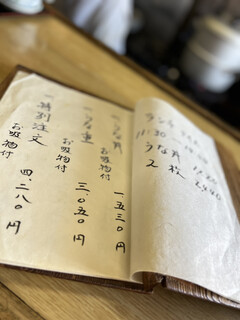 一 うな丼
お吸物付
一五三〇円
一 うな重
お吸物付
三、〇五〇円
一 特別注文
お吸物付
四、二八〇円
ランチ
11:30
うな丼
2枚
2440